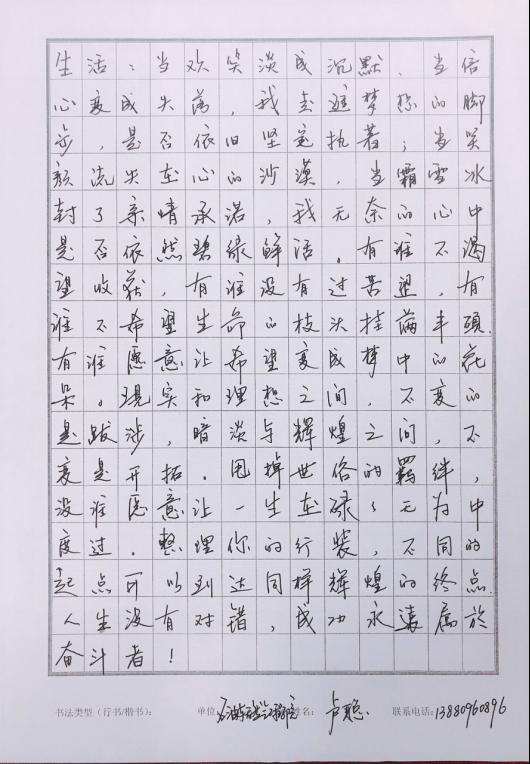 生活：当欢笑淡成沉默，当信
心变成失落，我走近梦想的脚
步，是否依旧坚定执着；当笑
颜流失在心的沙漠，当霜雪冰
封了亲情承诺，我无奈的心中
是否依然碧绿鲜活。有谁不渴
望收获，有谁没有过苦涩，有
谁不希望生命的枝头挂满丰硕，
有谁愿意让希望变成梦中的花
朵。现实和理想之间，不变的
是跋涉，暗淡与辉煌之间，不
变是开拓。甩掉世俗的羁绊，
没谁愿意让一生在碌碌无为中
度过。整理你的行装，不同的
起点可以到达同样辉煌的终点。
人生没有对错，成功永远属於
奋斗者！
书法类型（行书/楷书）： 单位： 姓名：卢聪 联系电话：13880960896